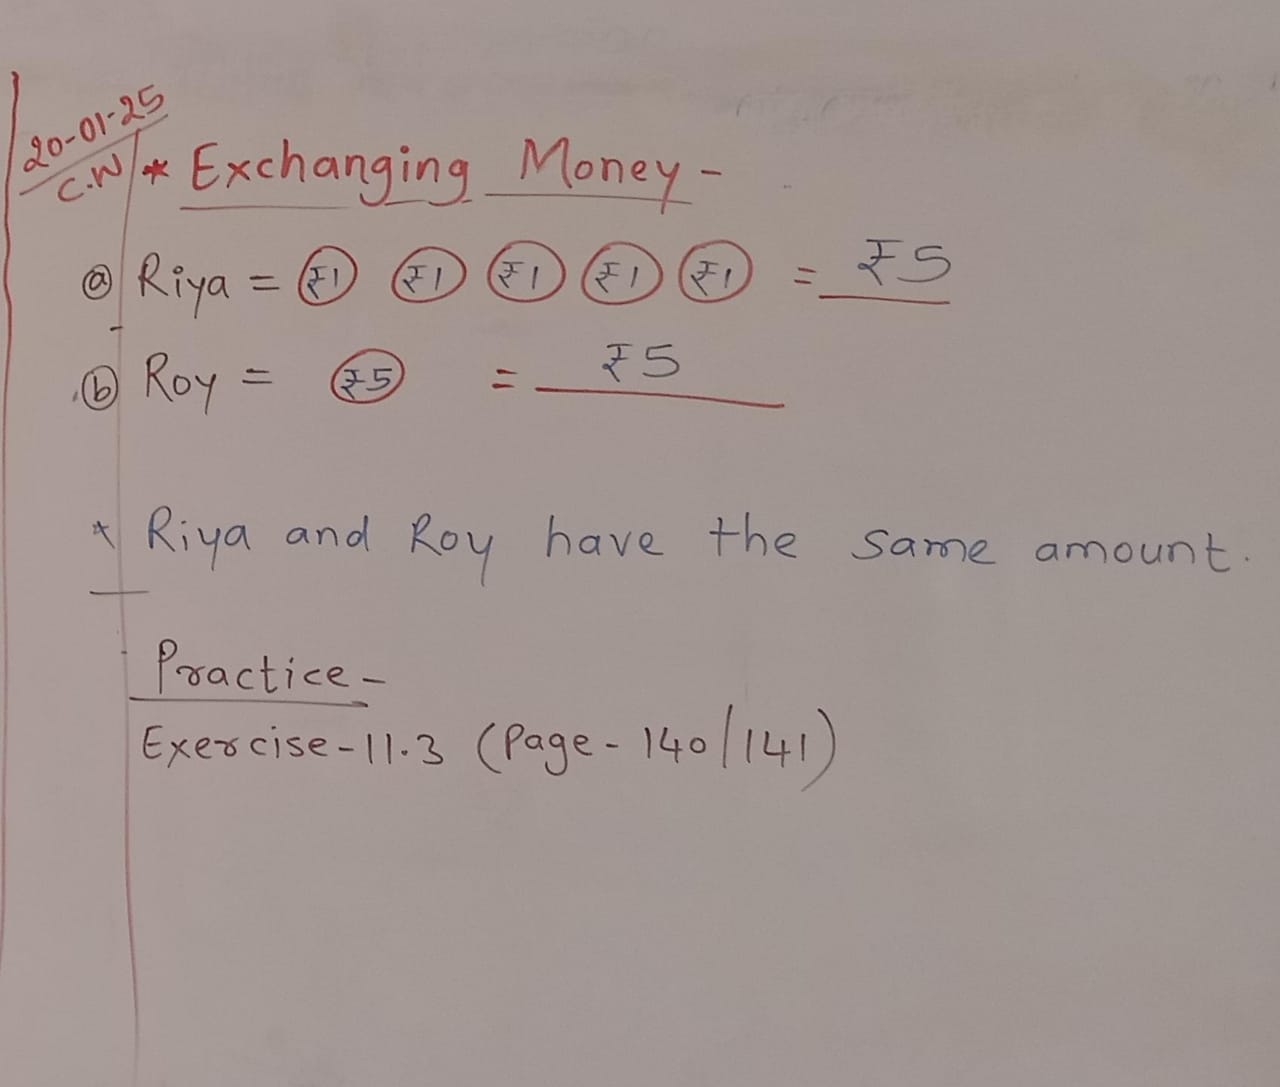 20-01-25
C.W * Exchanging Money -
(a) Riya = ₹1 ₹1 ₹1 ₹1 ₹1 = ₹5
(b) Roy = ₹5 = ₹5
* Riya and Roy have the same amount.
Practice -
Exercise - 11.3 (Page - 140/141)